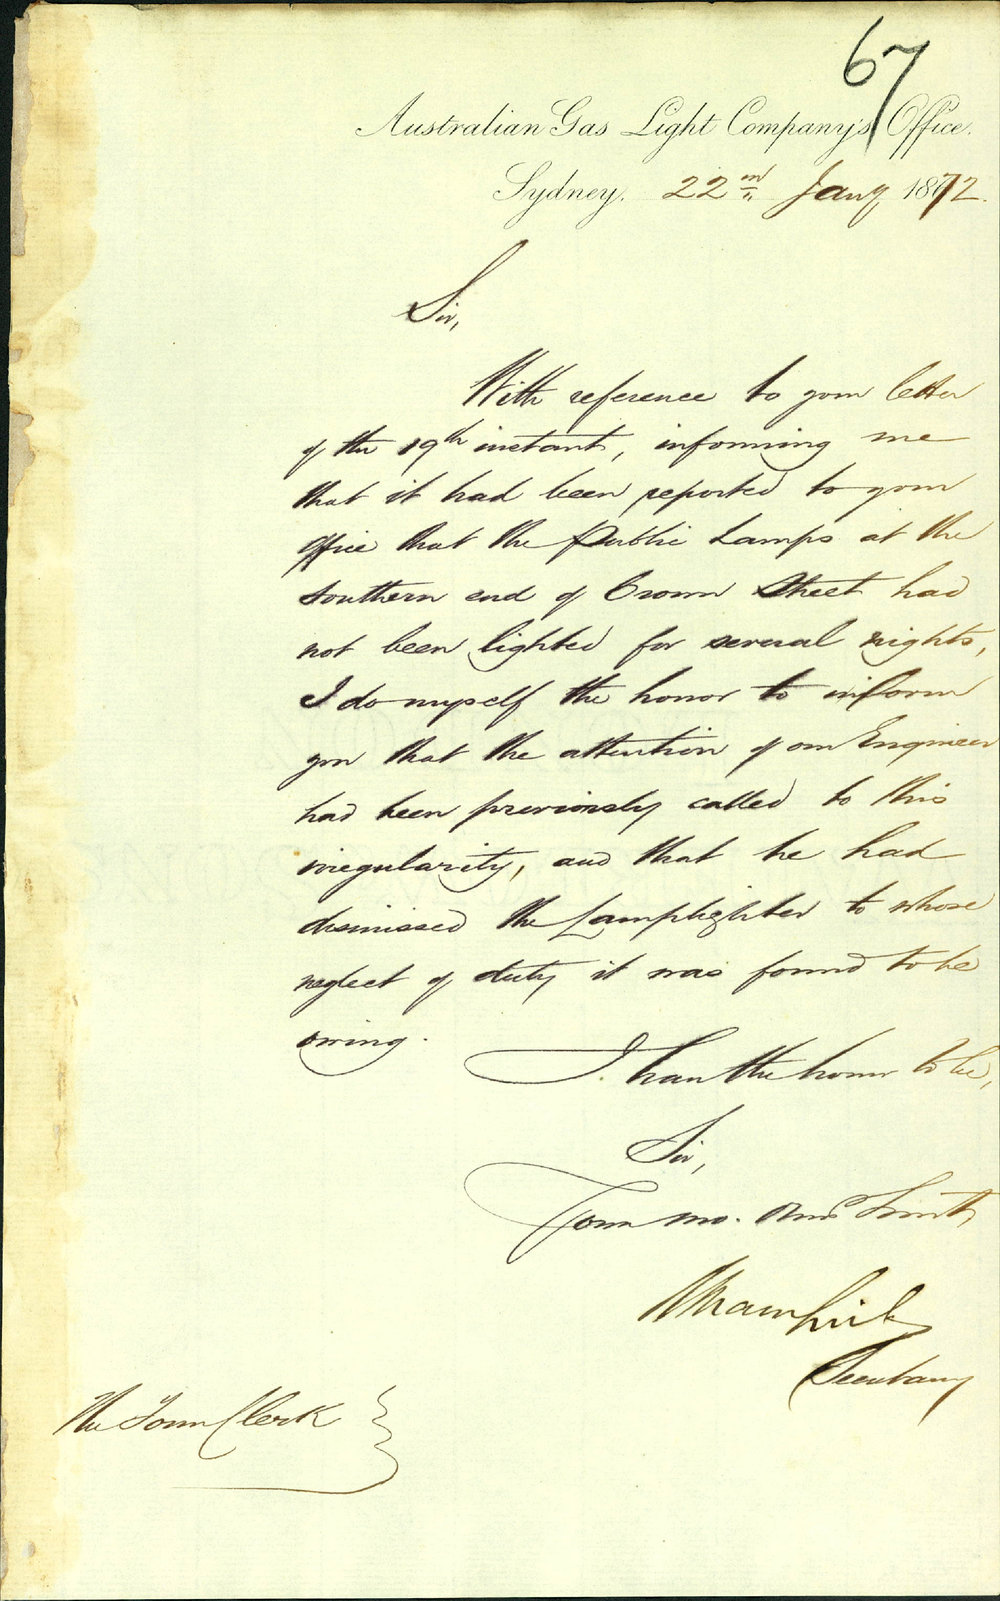 67
Australian Gas Light Company's Office.
Sydney. 22nd Jany 1872.
Sir,
With reference to your letter
of the 19th instant, informing me
that it had been reported to your
office that the Public Lamps at the
Southern end of Crown Street had
not been lighted for several nights,
I do myself the honor to inform
you that the attention of our Engineer
had been previously called to this
irregularity, and that he had
dismissed the Lamplighter to whose
neglect of duty it was found to be
owing.
I have the honor to be,
Sir,
Your mo. Obed Servt
Secretary
The Town Clerk